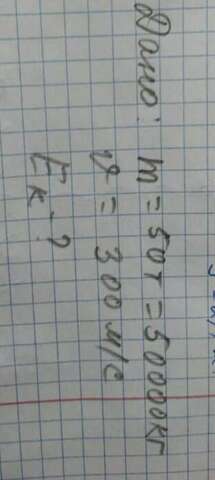 Дано: m = 50т = 50000кг
υ = 300 м/с
Eк - ?